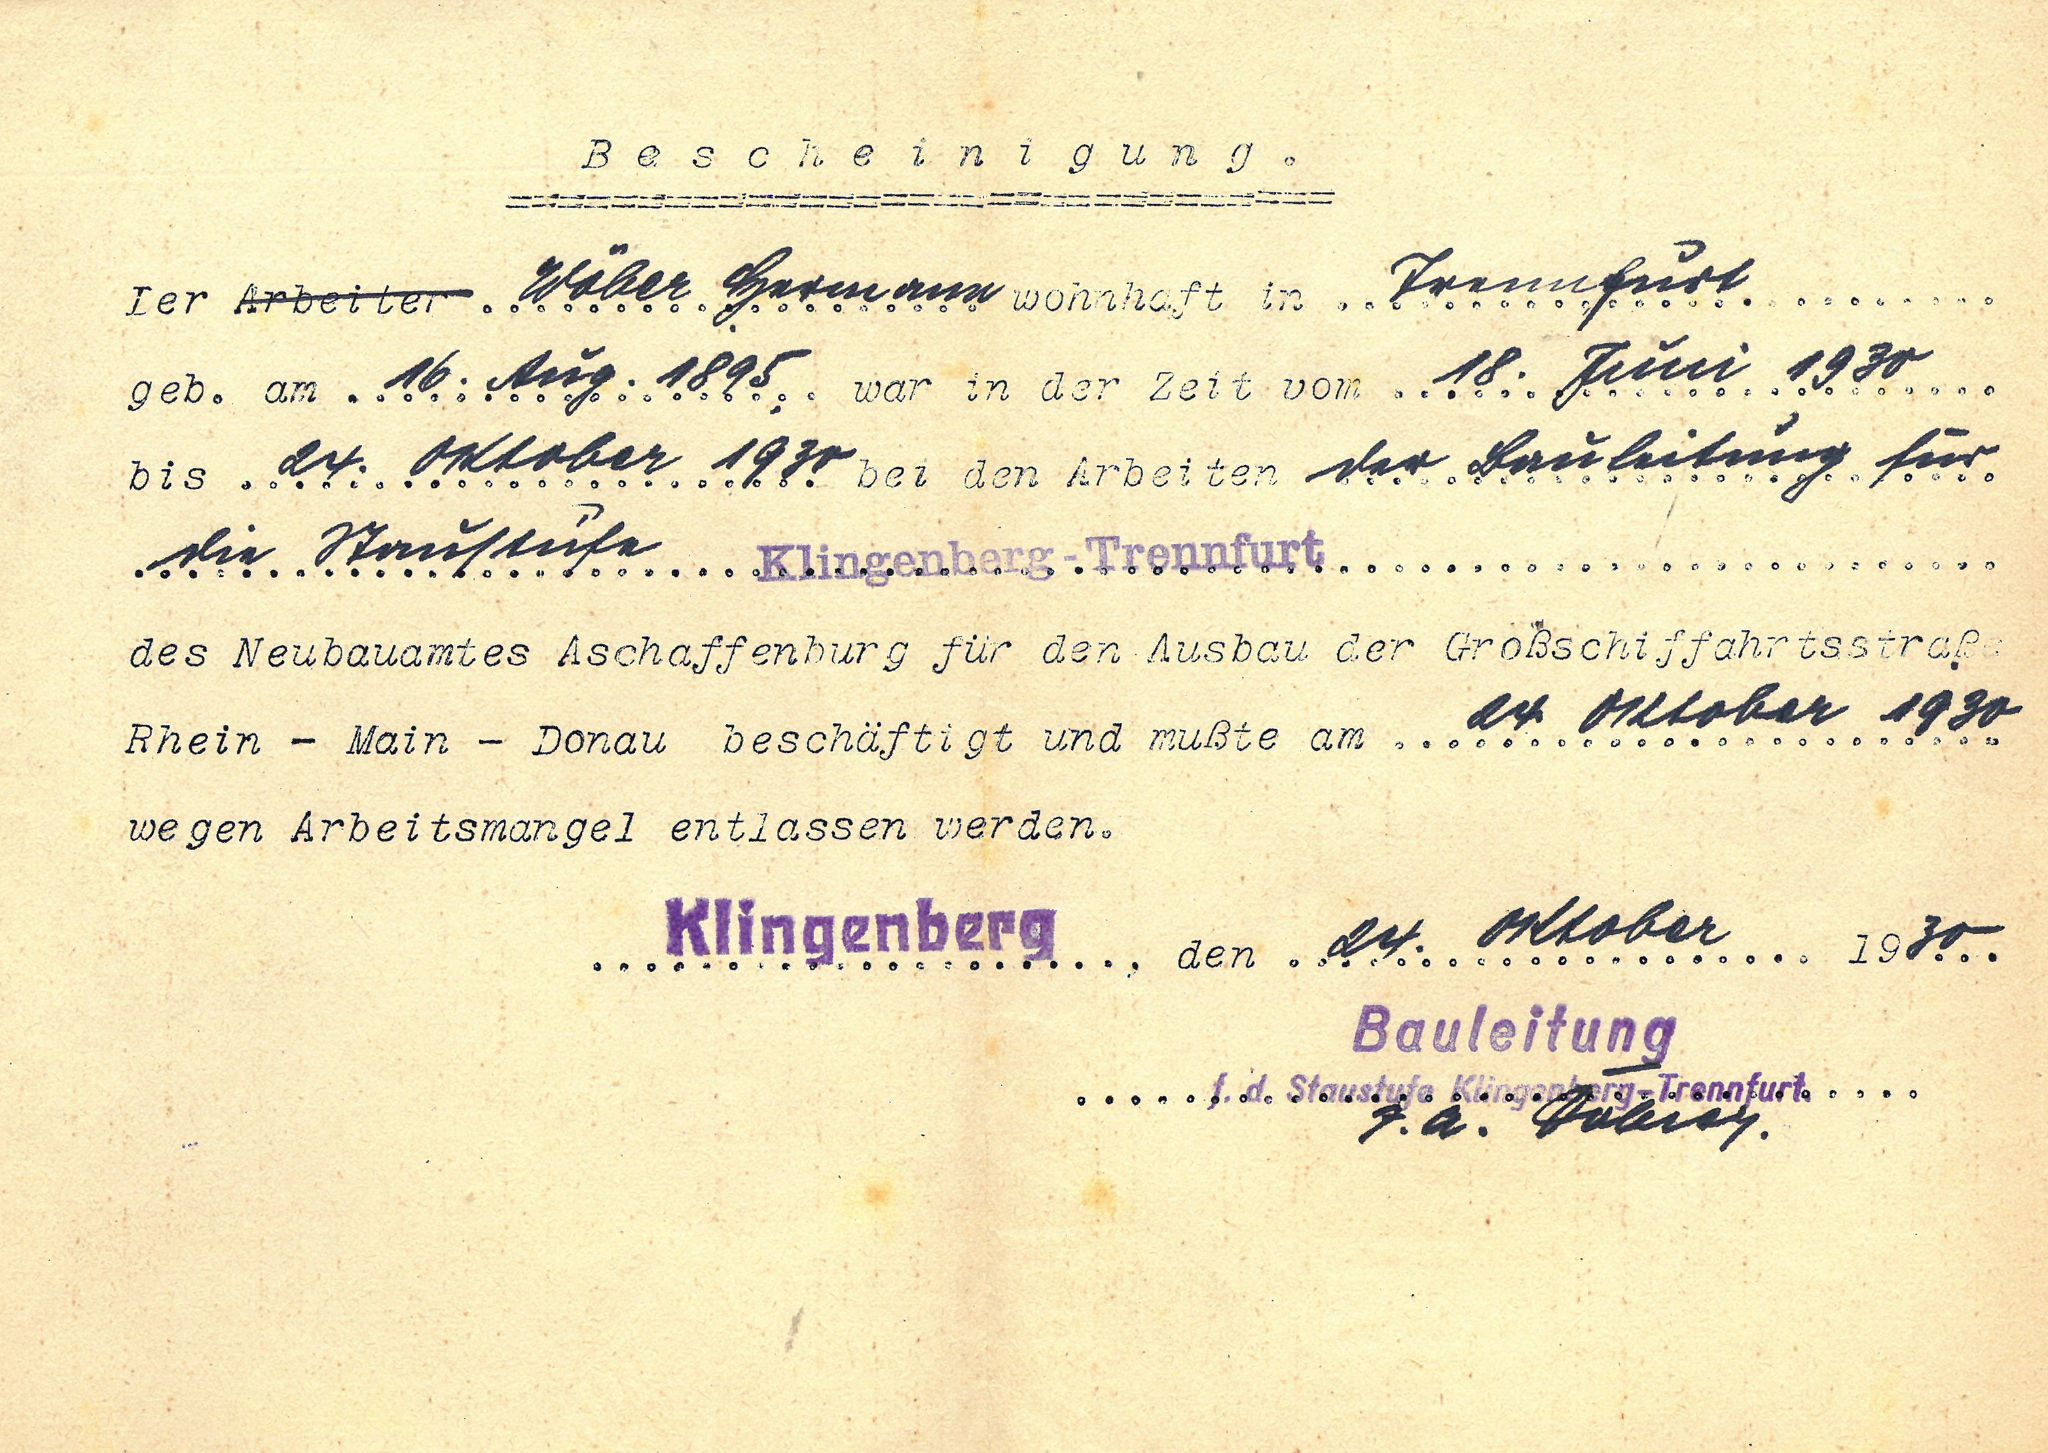 Bescheinigung.
Ier Arbeiter Wöber Hermann wohnhaft in Trennfurt
geb. am 16. Aug. 1895 war in der Zeit vom 18. Juni 1930
bis 24. Oktober 1930 bei den Arbeiten der Bauleitung für
die Staustufe Klingenberg-Trennfurt
des Neubauamtes Aschaffenburg für den Ausbau der Großschiffahrtsstraße
Rhein - Main - Donau beschäftigt und mußte am 24. Oktober 1930
wegen Arbeitsmangel entlassen werden.
Klingenberg, den 24. Oktober 1930
Bauleitung
f. d. Staustufe Klingenberg-Trennfurt.